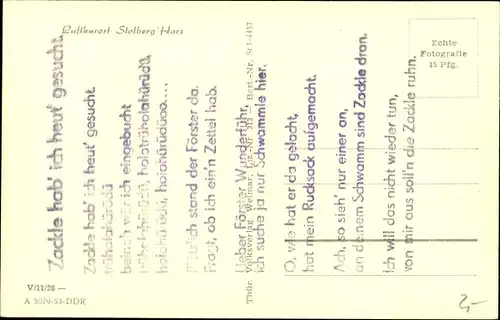 Luftkurort Stolberg/Harz
Echte
Fotografie
15 Pfg.
Zackle hab' ich heut' gesucht.
Zackle hab' ich heut' gesucht.
trüholahürüdü
beinah' wär ich eingebucht
holahürüdü, holatrüholahürüdü,
holahürüdü, holahürüdüaa....
Plötzlich stand der Förster da.
Fragt, ob ich ein'n Zettel hab.
Lieber Förster Wunderführ,
ich suche ja nur Schwammle hier.
O, wie hat er da gelacht,
hat mein Rucksack aufgemacht.
Ach, so sieh' nur einer an,
an deinem Schwamm sind Zackle dran.
Ich will das nicht wieder tun,
von mir aus soll'n die Zackle ruhn.
Thür. Volksverlag Weimar Best.-Nr. St 1-4457
V/11/28 —
A 5079-53-DDR
2,-